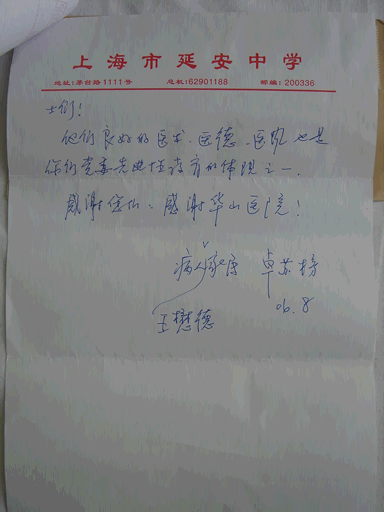 上海市延安中学
地址:茅台路1111号 总机:62901188 邮编:200336
士们!
他们良好的医术、医德、医风也是
你们党委先进性教育的体现之一.
感谢您们、感谢华山医院!
病人家属 卓苏榜
王懋德
06.8